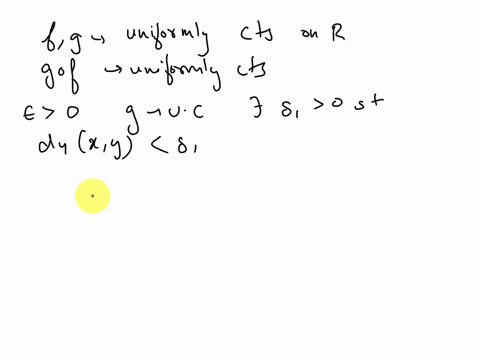 f, g → uniformly cts on R
g o f → uniformly cts
ε > 0 g → U.C ∃ δ₁ > 0 st
dy (x, y) < δ₁